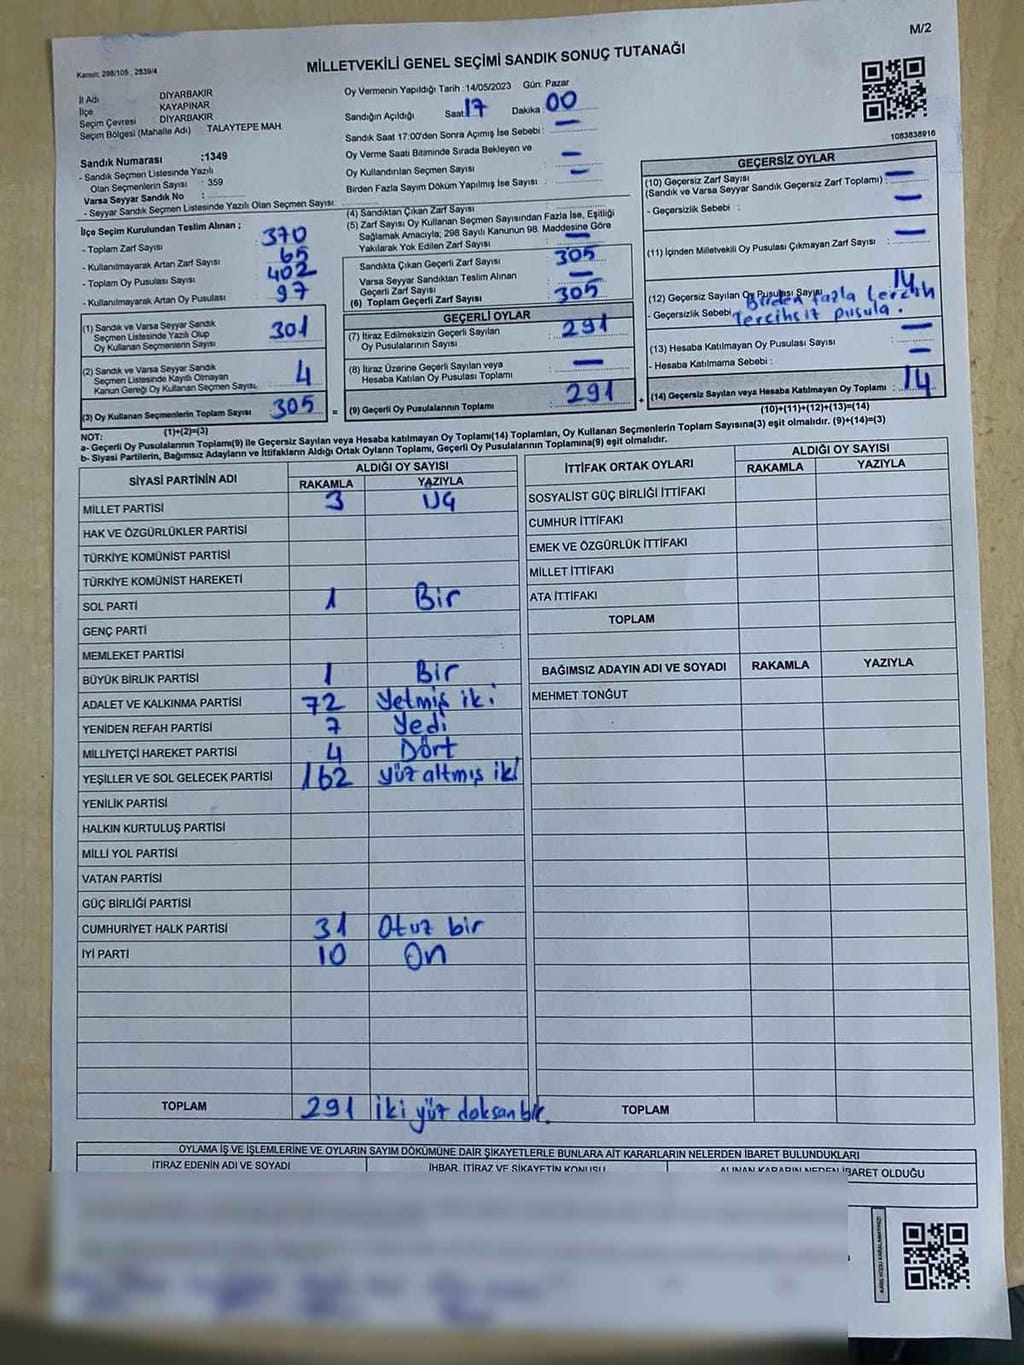 M/2
Kanun: 298/105 , 2839/4
MİLLETVEKİLİ GENEL SEÇİMİ SANDIK SONUÇ TUTANAĞI
İl Adı DİYARBAKIR
İlçe KAYAPINAR
Seçim Çevresi DİYARBAKIR
Seçim Bölgesi (Mahalle Adı) TALAYTEPE MAH.
Oy Vermenin Yapıldığı Tarih : 14/05/2023 Gün: Pazar
Sandığın Açıldığı Saat: 17 Dakika : 00
Sandık Saat 17:00'den Sonra Açımış İse Sebebi : —
Oy Verme Saati Bitiminde Sırada Bekleyen ve
Oy Kullandırılan Seçmen Sayısı —
Birden Fazla Sayım Döküm Yapılmış İse Sayısı —
1083838916
Sandık Numarası :1349
- Sandık Seçmen Listesinde Yazılı
Olan Seçmenlerin Sayısı : 359
Varsa Seyyar Sandık No :
- Seyyar Sandık Seçmen Listesinde Yazılı Olan Seçmen Sayısı:
İlçe Seçim Kurulundan Teslim Alınan ;
- Toplam Zarf Sayısı 370
- Kullanılmayarak Artan Zarf Sayısı 65
- Toplam Oy Pusulası Sayısı 402
- Kullanılmayarak Artan Oy Pusulası 97
(1) Sandık ve Varsa Seyyar Sandık
Seçmen Listesinde Yazılı Olup
Oy Kullanan Seçmenlerin Sayısı 301
(2) Sandık ve Varsa Seyyar Sandık
Seçmen Listesinde Kayıtlı Olmayan
Kanun Gereği Oy Kullanan Seçmen Sayısı, 4
(3) Oy Kullanan Seçmenlerin Toplam Sayısı 305 =
(1)+(2)=(3)
(4) Sandıktan Çıkan Zarf Sayısı
(5) Zarf Sayısı Oy Kullanan Seçmen Sayısından Fazla İse, Eşitliği
Sağlamak Amacıyla; 298 Sayılı Kanunun 98. Maddesine Göre
Yakılarak Yok Edilen Zarf Sayısı —
Sandıkta Çıkan Geçerli Zarf Sayısı 305
Varsa Seyyar Sandıktan Teslim Alınan
Geçerli Zarf Sayısı —
(6) Toplam Geçerli Zarf Sayısı 305
GEÇERLİ OYLAR
(7) İtiraz Edilmeksizin Geçerli Sayılan
Oy Pusulalarının Sayısı 291
(8) İtiraz Üzerine Geçerli Sayılan veya
Hesaba Katılan Oy Pusulası Toplamı —
(9) Geçerli Oy Pusulalarının Toplamı 291 +
GEÇERSİZ OYLAR
(10) Geçersiz Zarf Sayısı
(Sandık ve Varsa Seyyar Sandık Geçersiz Zarf Toplamı) : —
- Geçersizlik Sebebi : —
(11) İçinden Milletvekili Oy Pusulası Çıkmayan Zarf Sayısı : —
(12) Geçersiz Sayılan Oy Pusulası Sayısı 14
- Geçersizlik Sebebi Birden fazla tercih
Tercihsiz pusula.
(13) Hesaba Katılmayan Oy Pusulası Sayısı —
- Hesaba Katılmama Sebebi : —
(14) Geçersiz Sayılan veya Hesaba Katılmayan Oy Toplamı : 14
(10)+(11)+(12)+(13)=(14)
NOT:
a- Geçerli Oy Pusulalarının Toplamı(9) ile Geçersiz Sayılan veya Hesaba katılmayan Oy Toplamı(14) Toplamları, Oy Kullanan Seçmenlerin Toplam Sayısına(3) eşit olmalıdır. (9)+(14)=(3)
b- Siyasi Partilerin, Bağımsız Adayların ve İttifakların Aldığı Ortak Oyların Toplamı, Geçerli Oy Pusulalarının Toplamına(9) eşit olmalıdır.
SİYASİ PARTİNİN ADI ALDIĞI OY SAYISI
RAKAMLA YAZIYLA
MİLLET PARTİSİ 3 Üç
HAK VE ÖZGÜRLÜKLER PARTİSİ
TÜRKİYE KOMÜNİST PARTİSİ
TÜRKİYE KOMÜNİST HAREKETİ
SOL PARTİ 1 Bir
GENÇ PARTİ
MEMLEKET PARTİSİ
BÜYÜK BİRLİK PARTİSİ 1 Bir
ADALET VE KALKINMA PARTİSİ 72 Yetmiş iki
YENİDEN REFAH PARTİSİ 7 Yedi
MİLLİYETÇİ HAREKET PARTİSİ 4 Dört
YEŞİLLER VE SOL GELECEK PARTİSİ 162 yüz altmış iki
YENİLİK PARTİSİ
HALKIN KURTULUŞ PARTİSİ
MİLLİ YOL PARTİSİ
VATAN PARTİSİ
GÜÇ BİRLİĞİ PARTİSİ
CUMHURİYET HALK PARTİSİ 31 Otuz bir
İYİ PARTİ 10 On
TOPLAM 291 iki yüz doksan bir.
İTTİFAK ORTAK OYLARI ALDIĞI OY SAYISI
RAKAMLA YAZIYLA
SOSYALİST GÜÇ BİRLİĞİ İTTİFAKI
CUMHUR İTTİFAKI
EMEK VE ÖZGÜRLÜK İTTİFAKI
MİLLET İTTİFAKI
ATA İTTİFAKI
TOPLAM
BAĞIMSIZ ADAYIN ADI VE SOYADI RAKAMLA YAZIYLA
MEHMET TONĞUT
TOPLAM
OYLAMA İŞ VE İŞLEMLERİNE VE OYLARIN SAYIM DÖKÜMÜNE DAİR ŞİKAYETLERLE BUNLARA AİT KARARLARIN NELERDEN İBARET BULUNDUKLARI
İTİRAZ EDENİN ADI VE SOYADI İHBAR, İTİRAZ VE ŞİKAYETİN KONUSU ALINAN KARARIN NEDEN İBARET OLDUĞU
KARE KODU KARALAMAYINIZ!